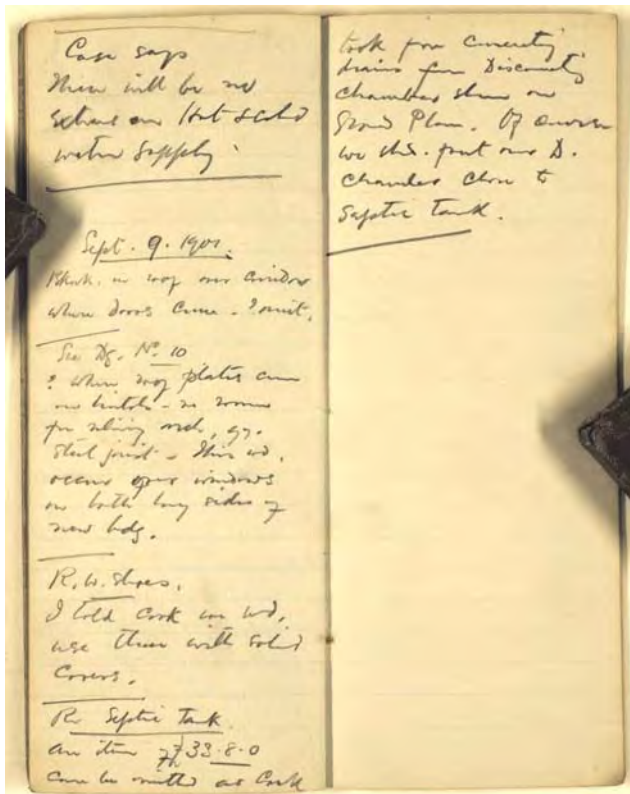 Case says
there will be no
extras on Hot & Cold
water supply.
Sept. 9. 1901.
in roof over corridor
where doors come - ? omit.
See Dg. No. 10
? where roof plates come
on lintols - no room
for relieving arch, qy.
steel joist - This wd.
occur over windows
on both long sides of
new bdg.
R. W. Shoes.
I told Cook we wd.
use them with solid
Covers.
Re Septic Tank.
An item of 33.8.0
can be omitted as Cook
took for
drains from Disconnectg
Chamber shewn on
Ground Plan. Of course
we shd. put our D.
Chamber close to
Septic Tank.